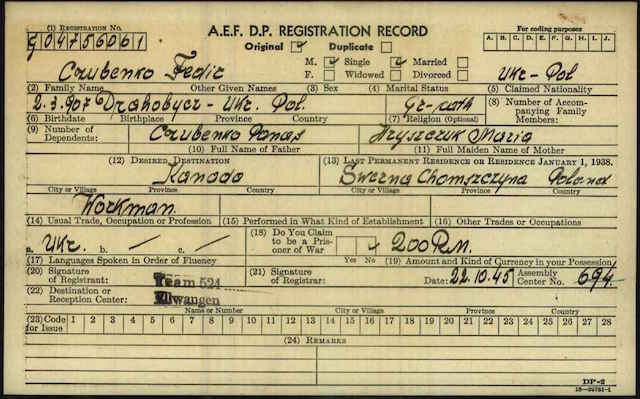 (1) REGISTRATION NO.
G 04756061
A.E.F. D.P. REGISTRATION RECORD
Original ✓ Duplicate
For coding purposes
A. B. C. D. E. F. G. H. I. J.
Czubenko Fedir
M. ✓ Single ✓ Married
F. Widowed Divorced
Ukr-Pol
(2) Family Name Other Given Names (3) Sex (4) Marital Status (5) Claimed Nationality
2.3.907 Drahobycz-Ukr. Pol. Gr-cath
(8) Number of Accompanying Family Members:
(6) Birthdate Birthplace Province Country (7) Religion (Optional)
(9) Number of Dependents:
Czubenko Panas
Hryszczuk Maria
(10) Full Name of Father (11) Full Maiden Name of Mother
(12) DESIRED DESTINATION (13) LAST PERMANENT RESIDENCE OR RESIDENCE JANUARY 1, 1938.
Kanada
Chomszczyna
City or Village Province Country City or Village Province Country
Workman
(14) Usual Trade, Occupation or Profession (15) Performed in What Kind of Establishment (16) Other Trades or Occupations
a. Ukr. b. / c. /
(18) Do You Claim to be a Prisoner of War
Yes No
200 R.M.
(17) Languages Spoken in Order of Fluency
(19) Amount and Kind of Currency in your Possession
(20) Signature of Registrant:
Team 524
(21) Signature of Registrar:
Date: 22.10.45 Assembly Center No. 694
(22) Destination or Reception Center:
Ellwangen
Name or Number City or Village Province Country
(23) Code for Issue 1 2 3 4 5 6 7 8 9 10 11 12 13 14 15 16 17 18 19 20 21 22 23 24 25 26 27 28
(24) REMARKS
DP-2